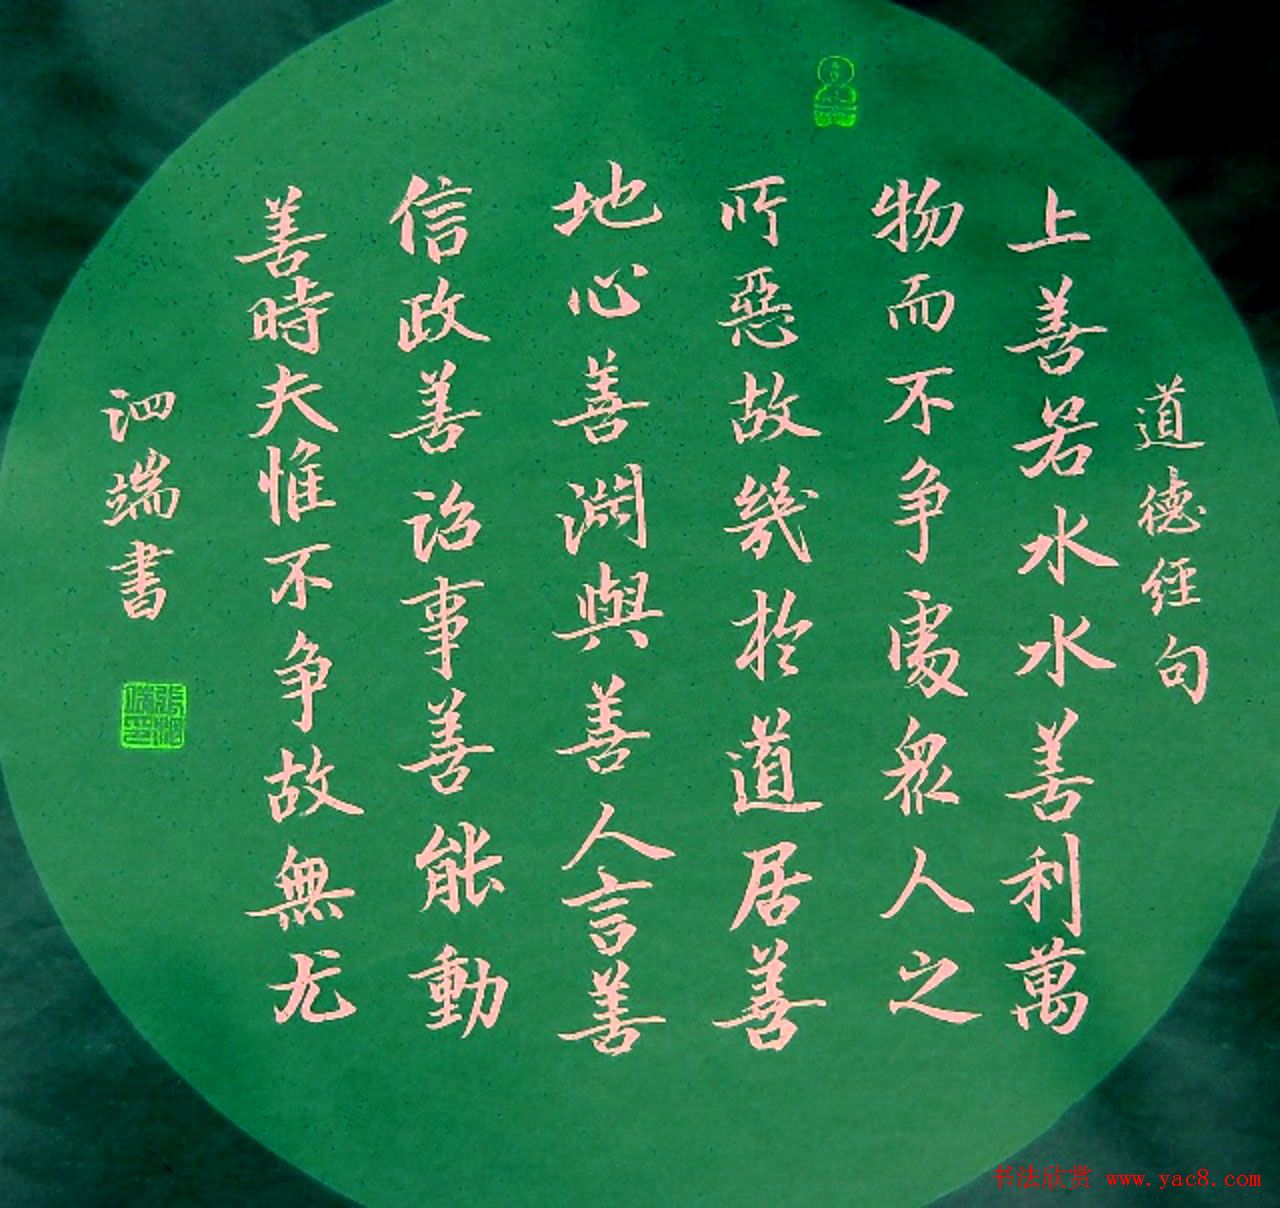 道德经句
上善若水水善利萬
物而不争處衆人之
所惡故幾於道居善
地心善淵與善人言善
信政善治事善能動
善時夫惟不争故無尤
泗端書
張泗端印
书法欣赏 www.yac8.com